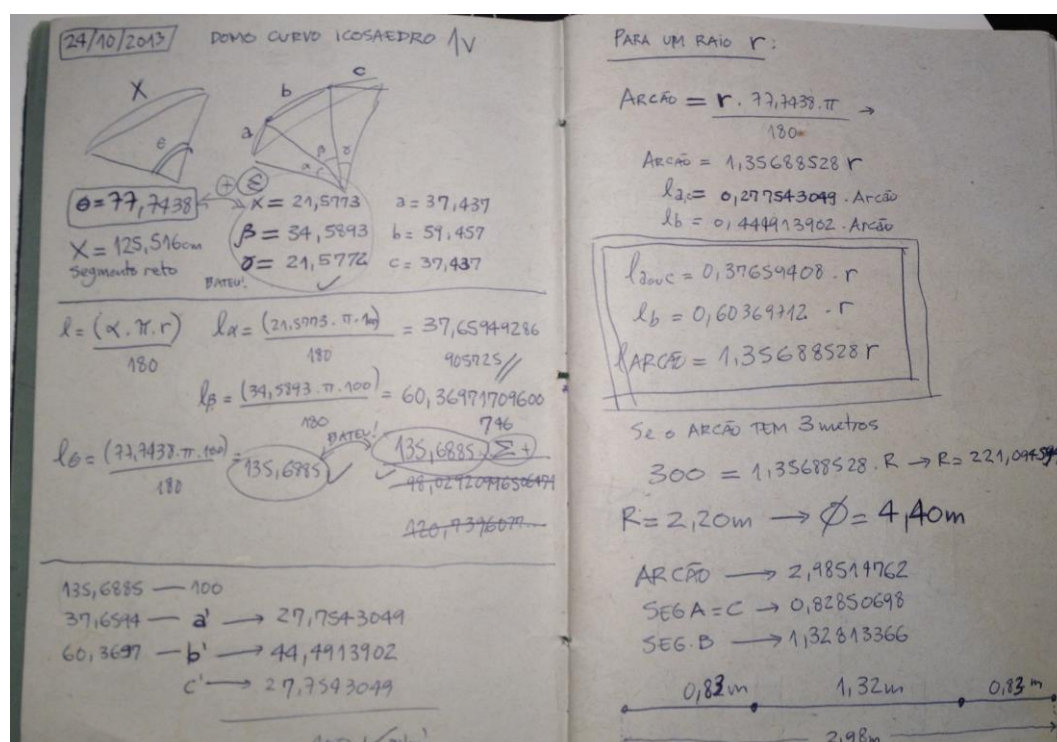 24/10/2013 DOMO CURVO ICOSAEDRO 1V
X
θ
a b c
α β γ
θ = 77,7438 + Σ α = 21,5773 a = 37,437
X = 125,516cm β = 34,5893 b = 59,457
segmento reto γ = 21,5772 c = 37,437
BATEU! ✓
l = (α . π . r) / 180 lα = (21,5773 . π . 100) / 180 = 37,65949286
905725 //
lβ = (34,5893 . π . 100) / 180 = 60,36971709600
746
lθ = (77,7438 . π . 100) / 180 = 135,6885 ✓ BATEU! 135,6885 Σ +
✓ 98,02920996506471
120,7396077
135,6885 — 100
37,6594 — a' → 27,7543049
60,3697 — b' → 44,4913902
c' → 27,7543049
PARA UM RAIO r:
ARCÃO = r . 77,7438 . π / 180 →
ARCÃO = 1,35688528 r
la,c = 0,277543049 . Arcão
lb = 0,444913902 . Arcão
l a ou c = 0,37659408 . r
lb = 0,60369712 . r
l ARCÃO = 1,35688528 r
Se o ARCÃO TEM 3 metros
300 = 1,35688528 . R → R = 221,094594
R = 2,20m → Ø = 4,40m
ARCÃO → 2,98514762
SEG A = C → 0,82850698
SEG. B → 1,32813366
0,83m 1,32m 0,83m
2,98m